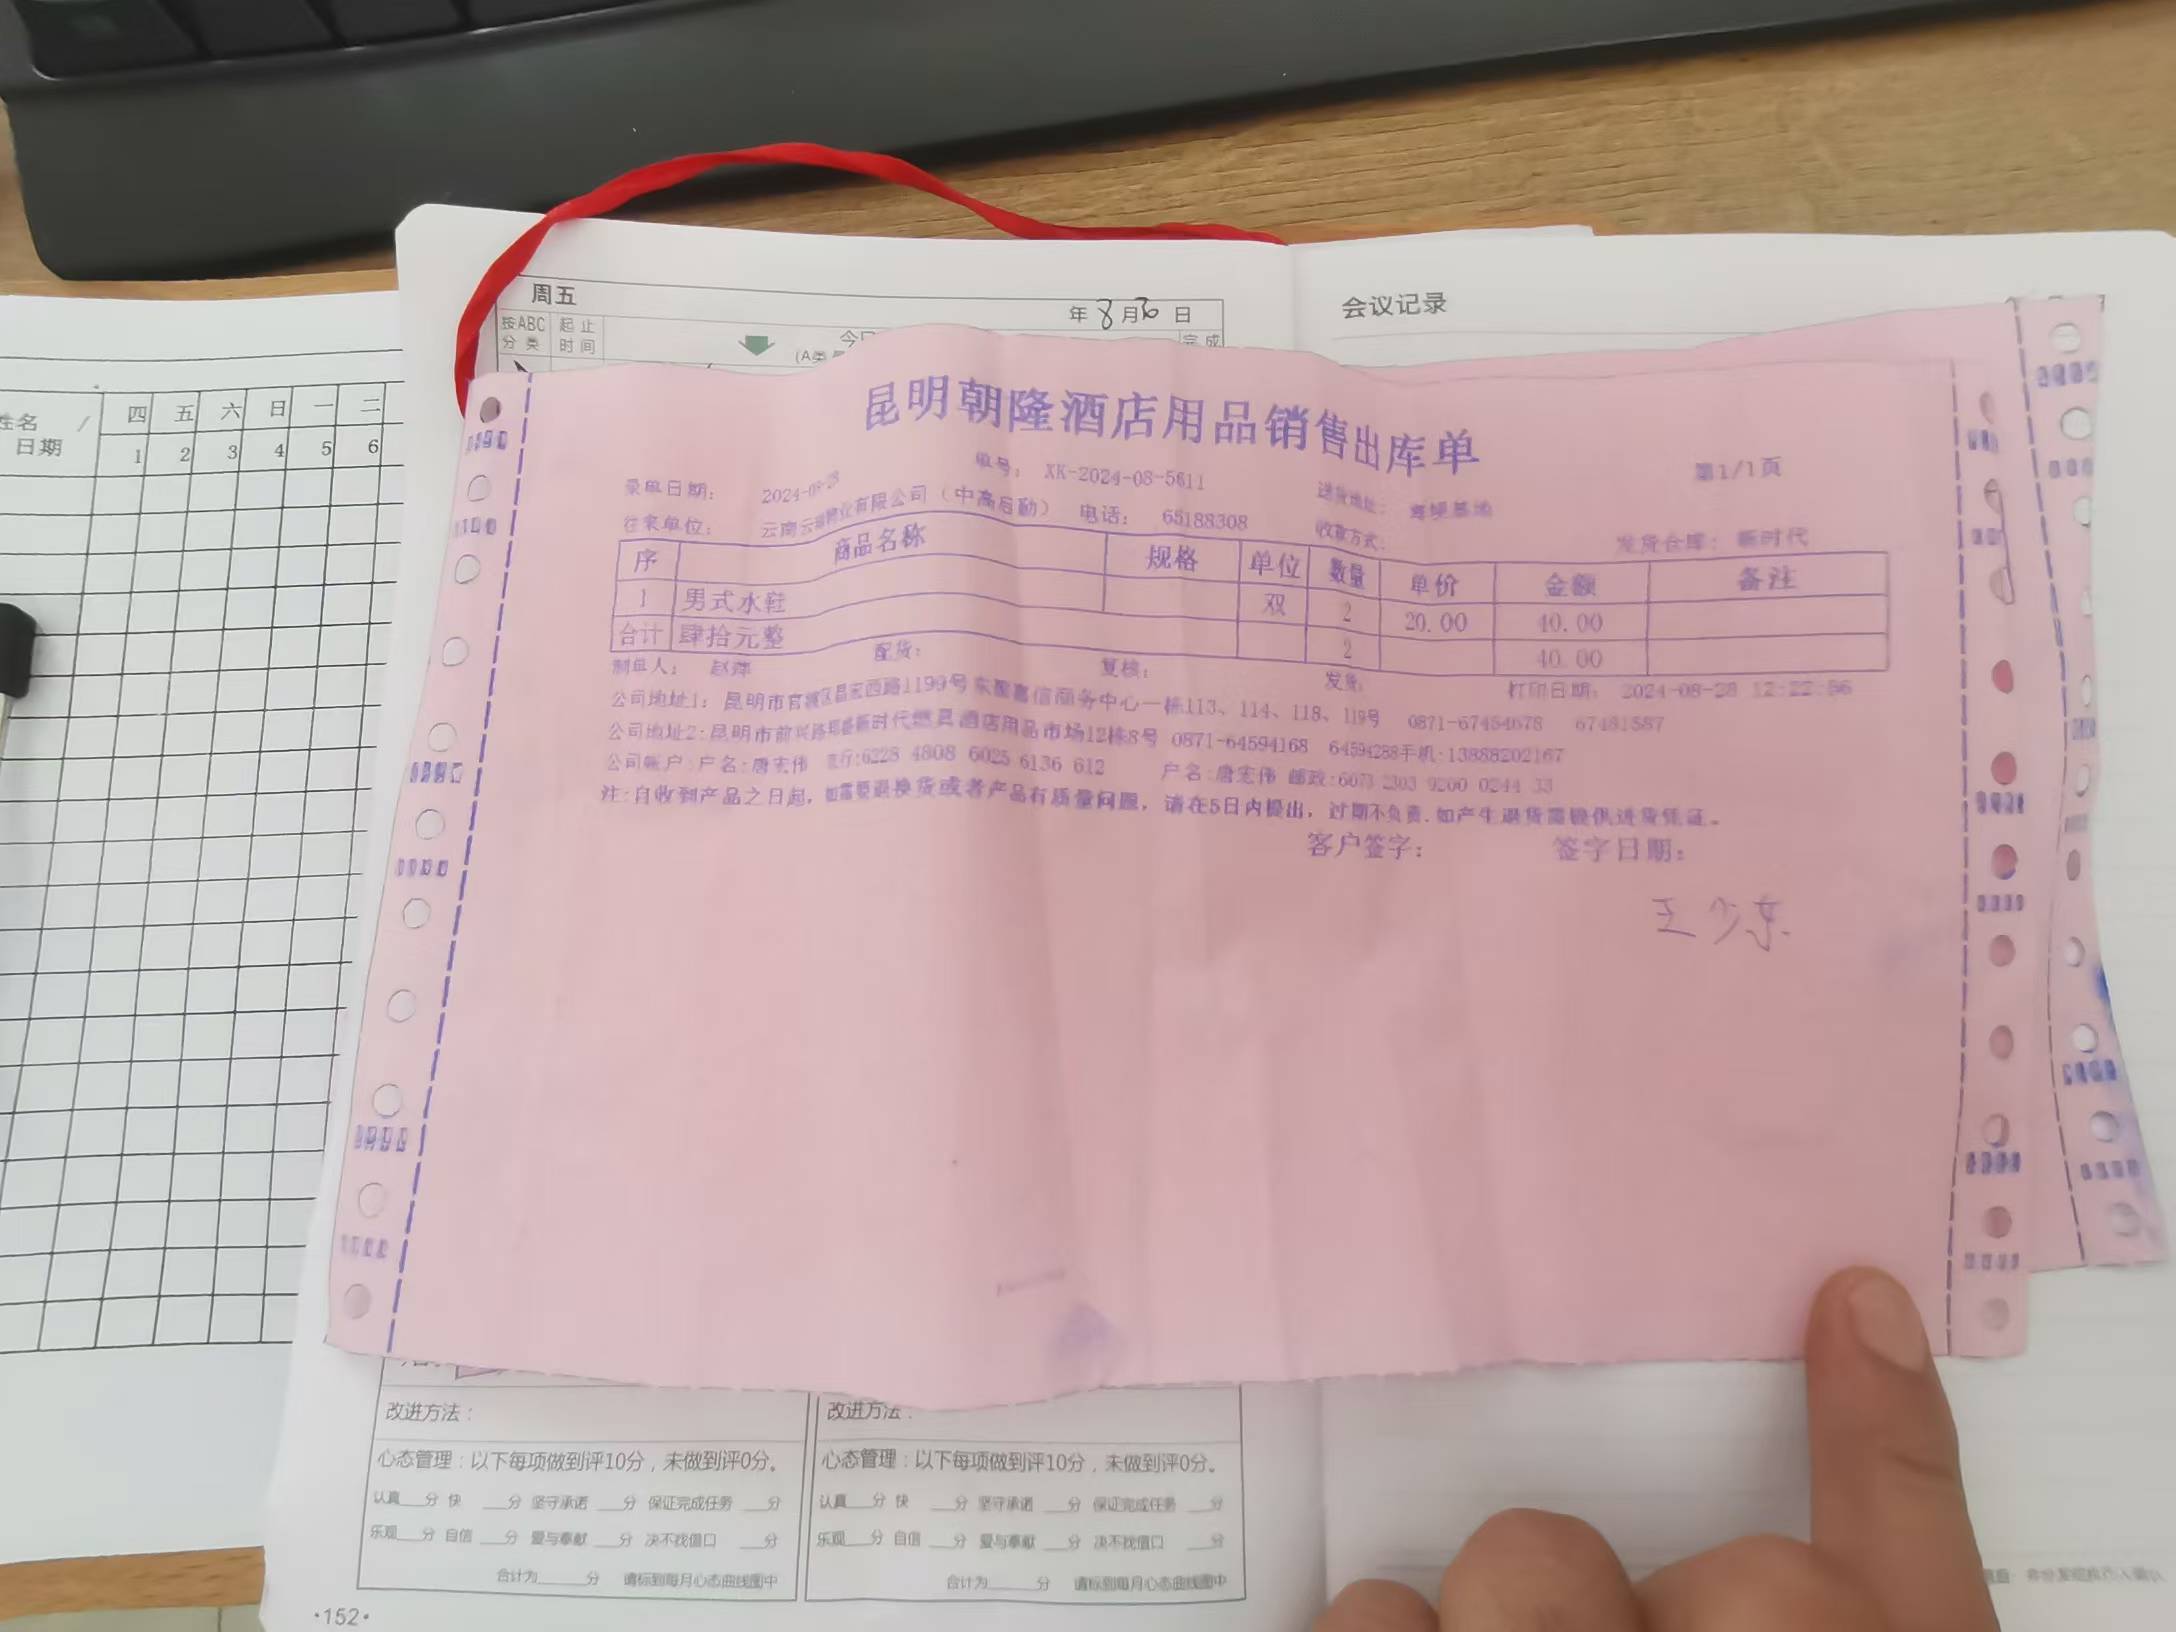 周五
年8月30日
会议记录
按ABC分类
起止时间
完成
(A类
姓名
日期
四 五 六 日 一 二
1 2 3 4 5 6
昆明朝隆酒店用品销售出库单
第1/1页
录单日期： 2024-08-28 单号： XK-2024-08-5611 送货地址： 基地
往来单位： 云南云 物业有限公司（中高后勤） 电话： 65188308 收款方式： 发货仓库：新时代
序 商品名称 规格 单位 数量 单价 金额 备注
1 男式水鞋 双 2 20.00 40.00
合计 肆拾元整 2 40.00
制单人： 赵萍 配货： 复核： 发货 打印日期： 2024-08-28 12:22:56
公司地址1：昆明市官渡区昌宏西路1199号东聚嘉信商务中心一栋113、114、118、119号 0871-67454678 67481587
公司地址2：昆明市前兴路 新时代燃具酒店用品市场12栋8号 0871-64594168 64594288手机:13888202167
公司帐户:户名:唐宏伟 农行:6228 4808 6025 6136 612 户名:唐宏伟 邮政:6073 2303 9200 0244 33
注:自收到产品之日起，如需要退换货或者产品有质量问题，请在5日内提出，过期不负责.如产生退货需提供进货凭证。
客户签字： 签字日期：
王少东
改进方法：
心态管理：以下每项做到评10分，未做到评0分。
认真___分 快___分 坚守承诺___分 保证完成任务___分
乐观___分 自信___分 爱与奉献___分 决不找借口___分
合计为______分 请标到每月心态曲线图中
改进方法：
心态管理：以下每项做到评10分，未做到评0分。
认真___分 快___分 坚守承诺___分 保证完成任务___分
乐观___分 自信___分 爱与奉献___分 决不找借口___分
合计为______分 请标到每月心态曲线图中
·152·